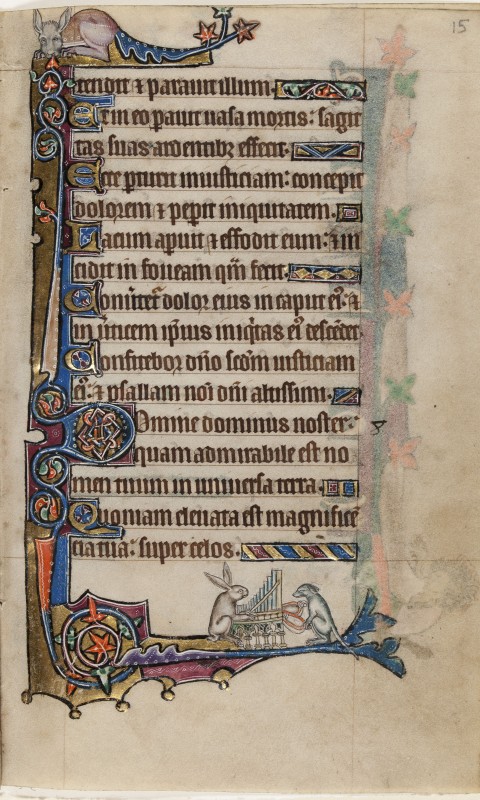 15
tendit ⁊ parauit illum
Et in eo pauit uasa mortis: sagit
tas suas ardentibꝫ effecit.
Ecce pturit iniusticiam: concepit
dolorem ⁊ pepit iniquitatem.
Lacum apuit ⁊ effodit eum: ⁊ in
cidit in foueam qm̄ fecit.
Conuertet᷑ dolor eius in caput ei᷒: ⁊
in uticem ipius iniqitas ei᷒ descedet.
Confitebor dn̄o scdm̄ iusticiam
ei᷒: ⁊ psallam noi dn̄i altissimi.
Domine dominus noster:
quam admirabile est no
men tuum in uniuersa terra.
Quoniam eleuata est magnifice
cia tua: super celos.